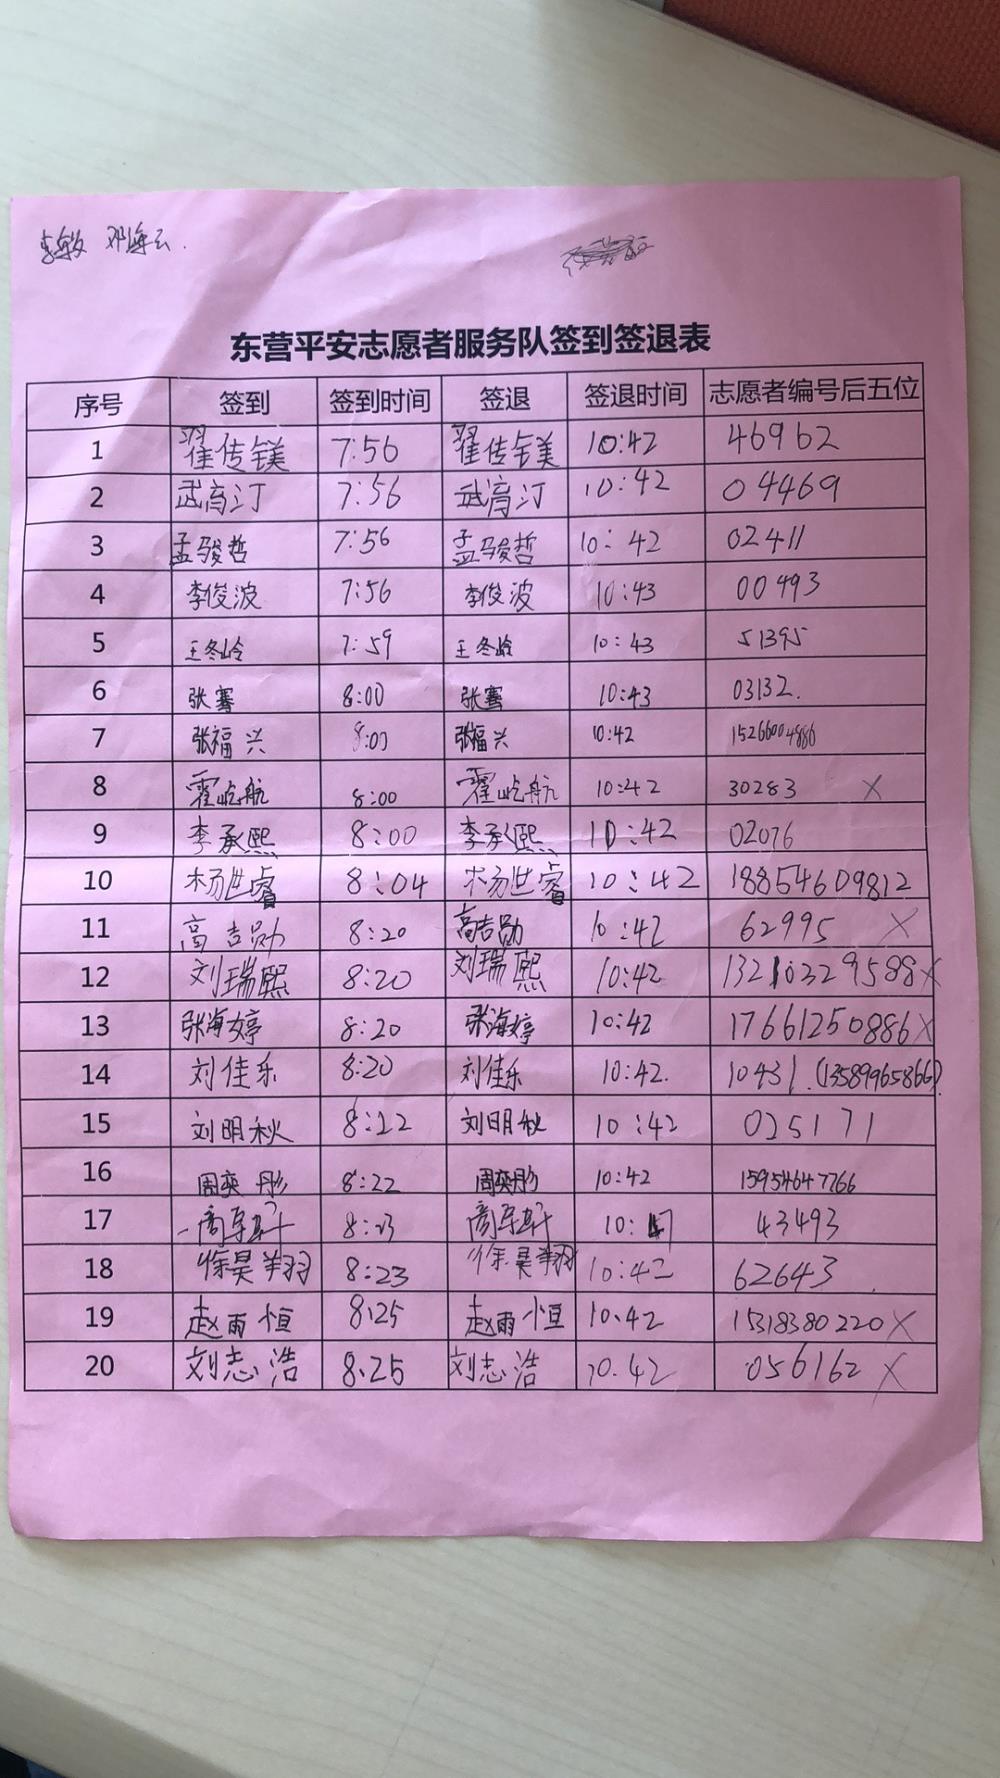 李敏 邓海云.
东营平安志愿者服务队签到签退表
序号 签到 签到时间 签退 签退时间 志愿者编号后五位
1 翟传镁 7:56 翟传镁 10:42 46962
2 武高汀 7:56 武高汀 10:42 04469
3 孟骏哲 7:56 孟骏哲 10:42 02411
4 李俊波 7:56 李俊波 10:43 00493
5 王冬岭 7:59 王冬岭 10:43 51395
6 张骞 8:00 张骞 10:43 03132.
7 张福兴 8:00 张福兴 10:42 15266004886
8 霍屹航 8:00 霍屹航 10:42 30283 X
9 李承熙 8:00 李承熙 10:42 02076
10 杨世睿 8:04 杨世睿 10:42 18854609812
11 高吉勋 8:20 高吉勋 10:42 62995 X
12 刘瑞熙 8:20 刘瑞熙 10:42 13210329588 X
13 张海婷 8:20 张海婷 10:42 17661250886 X
14 刘佳乐 8:20 刘佳乐 10:42. 10431.(13589965866).
15 刘明秋 8:22 刘明秋 10:42 025171
16 周奕彤 8:22 周奕彤 10:42 15954647766
17 8:23 10: 43493
18 徐昊翔 8:23 徐昊翔 10:42 62643
19 赵雨恒 8:25 赵雨恒 10:42 15318380220 X
20 刘志浩 8:25 刘志浩 10.42 056162 X